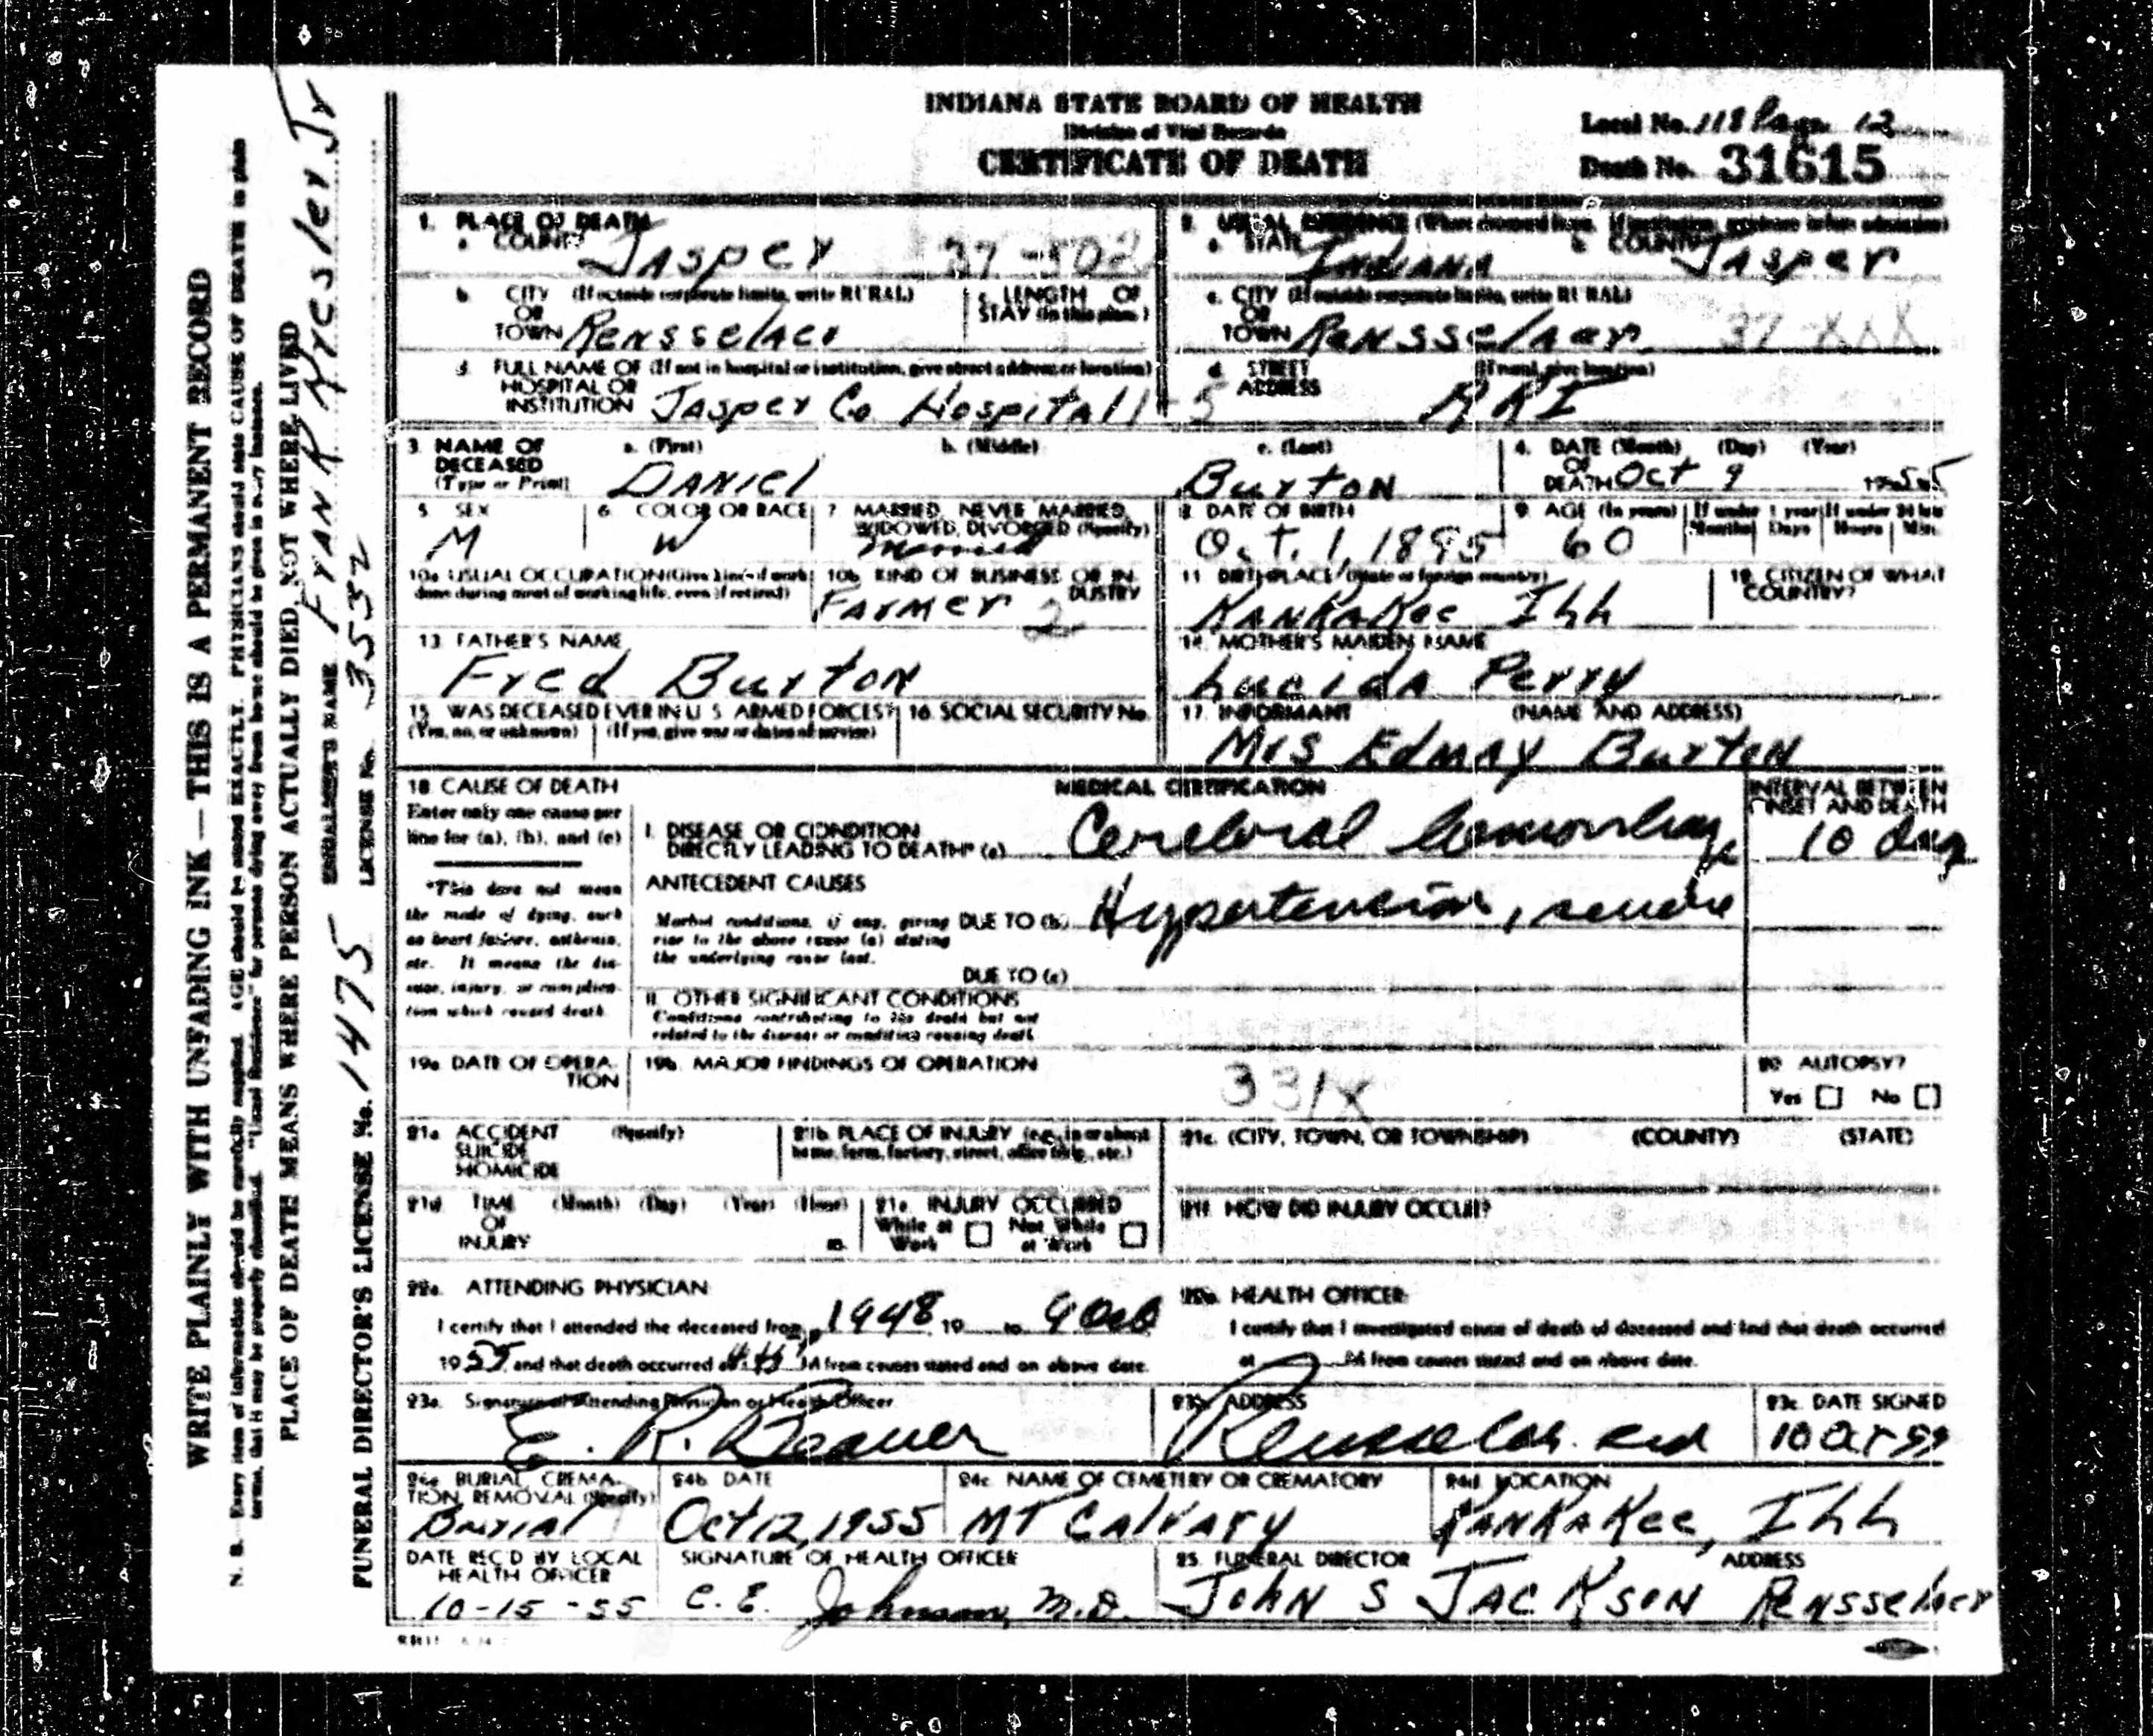 INDIANA STATE BOARD OF HEALTH
Division of Vital Records
CERTIFICATE OF DEATH
Local No. 118 Page 12
Death No. 31615
1. PLACE OF DEATH
a. COUNTY Jasper 37-
b. CITY (If outside corporate limits, write RURAL) OR TOWN Rensselaer
c. LENGTH OF STAY (in this place)
d. FULL NAME OF (If not in hospital or institution, give street address or location) HOSPITAL OR INSTITUTION Jasper Co Hospital
2. USUAL RESIDENCE (Where deceased lived. If institution, residence before admission)
a. STATE Indiana b. COUNTY Jasper
c. CITY (If outside corporate limits, write RURAL) OR TOWN Rensselaer 37-XXX
d. STREET ADDRESS (If rural, give location)
3. NAME OF DECEASED (Type or Print)
a. (First) Daniel b. (Middle) c. (Last) Burton
4. DATE OF DEATH (Month) (Day) (Year) Oct 9 1955
5. SEX M
6. COLOR OR RACE W
7. MARRIED, NEVER MARRIED, WIDOWED, DIVORCED (Specify) Married
8. DATE OF BIRTH Oct. 1, 1895
9. AGE (In years) 60 If under 1 year Months Days If under 24 hrs Hours Min.
10a USUAL OCCUPATION (Give kind of work done during most of working life, even if retired)
10b KIND OF BUSINESS OR INDUSTRY Farmer 2
11. BIRTHPLACE (State or foreign country) KanKaKee Ill
12. CITIZEN OF WHAT COUNTRY?
13. FATHER'S NAME
Fred Burton
14. MOTHER'S MAIDEN NAME
Perry
15. WAS DECEASED EVER IN U. S. ARMED FORCES?
(Yes, no, or unknown) (If yes, give war or dates of service)
16. SOCIAL SECURITY No.
17. INFORMANT (NAME AND ADDRESS)
Mrs Edmay Burton
18 CAUSE OF DEATH
Enter only one cause per
line for (a), (b), and (c)
*This does not mean
the mode of dying, such
as heart failure, asthenia,
etc. It means the dis-
ease, injury, or complica-
tion which caused death.
MEDICAL CERTIFICATION
INTERVAL BETWEEN ONSET AND DEATH
I. DISEASE OR CONDITION
DIRECTLY LEADING TO DEATH* (a) Cerebral hemorrhage 10 days
ANTECEDENT CAUSES
Morbid conditions, if any, giving DUE TO (b) Hypertension, severe
rise to the above cause (a) stating
the underlying cause last.
DUE TO (c)
II. OTHER SIGNIFICANT CONDITIONS
Conditions contributing to the death but not
related to the disease or condition causing death.
19a DATE OF OPERATION
19b. MAJOR FINDINGS OF OPERATION
331X
20 AUTOPSY?
Yes No
21a ACCIDENT SUICIDE HOMICIDE (Specify)
21b PLACE OF INJURY (e.g., in or about home, farm, factory, street, office bldg., etc.)
21c. (CITY, TOWN, OR TOWNSHIP) (COUNTY) (STATE)
21d TIME OF INJURY (Month) (Day) (Year) (Hour) m.
21e. INJURY OCCURRED
While at Work Not While at Work
21f. HOW DID INJURY OCCUR?
22a. ATTENDING PHYSICIAN
I certify that I attended the deceased from 1948 19 to 9 Oct
1955 and that death occurred at M from causes stated and on above date.
22b. HEALTH OFFICER
I certify that I investigated cause of death of deceased and find that death occurred
at M from causes stated and on above date.
23a. Signature of Attending Physician or Health Officer
E. R.
23b. ADDRESS
23c. DATE SIGNED
10 Oct 55
24a BURIAL, CREMATION, REMOVAL (Specify) Burial
24b DATE Oct 12, 1955
24c NAME OF CEMETERY OR CREMATORY MT Calvary
24d LOCATION KanKaKee, Ill
DATE REC'D BY LOCAL HEALTH OFFICER
10-15-55
SIGNATURE OF HEALTH OFFICER
C. E. Johnson, M.D.
25. FUNERAL DIRECTOR ADDRESS
John S Jackson Rensselaer
WRITE PLAINLY WITH UNFADING INK—THIS IS A PERMANENT RECORD
N. B. Every item of information should be carefully supplied. AGE should be stated EXACTLY. PHYSICIANS should state CAUSE OF DEATH in plain
terms, that it may be properly classified. "Usual Residence" for persons dying away from home should be given in every instance.
PLACE OF DEATH MEANS WHERE PERSON ACTUALLY DIED, NOT WHERE LIVED
EMBALMER'S NAME Frank Kresler Jr
FUNERAL DIRECTOR'S LICENSE No. 1475 LICENSE No. 3532